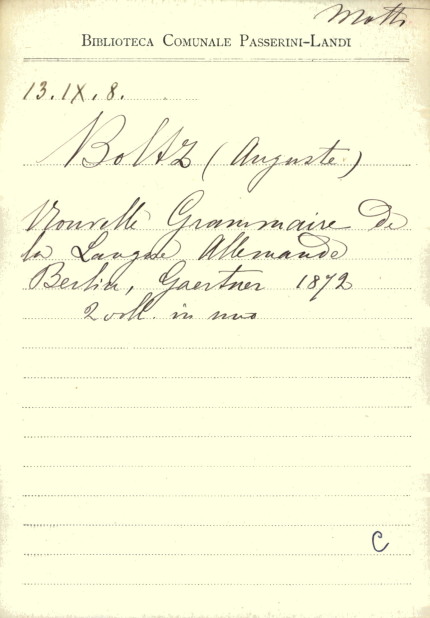 Motti
BIBLIOTECA COMUNALE PASSERINI-LANDI
13.IX.8.
Boltz (Auguste)
Nouvelle Grammaire de
la Langue Allemande
Berlin, Gaertner 1872
2 voll. in uno
C